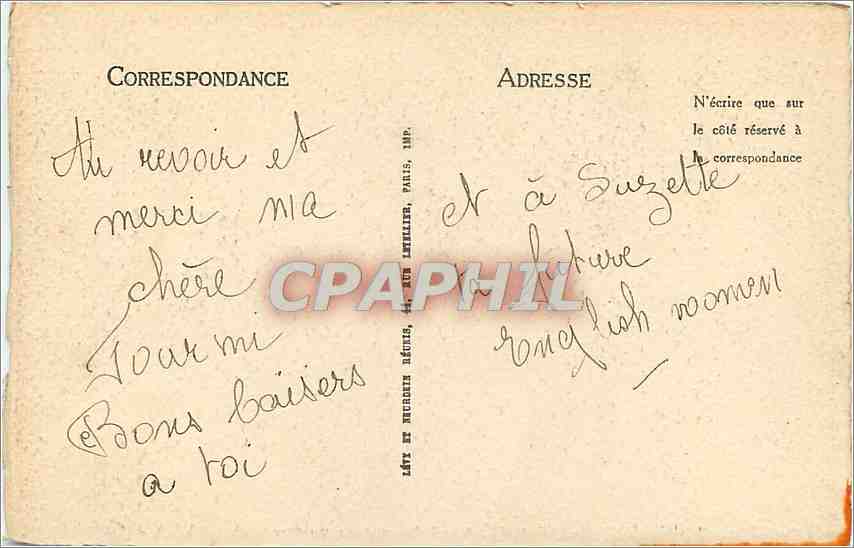 CORRESPONDANCE
Au revoir et
merci ma
chère
Fourmi
Bons baisers
a toi
LÉVY ET NEURDEIN RÉUNIS, 44, RUE LETELLIER, PARIS, IMP.
ADRESSE
N'écrire que sur
le côté réservé à
la correspondance
et à Suzette
la future
English women
CPAPHIL